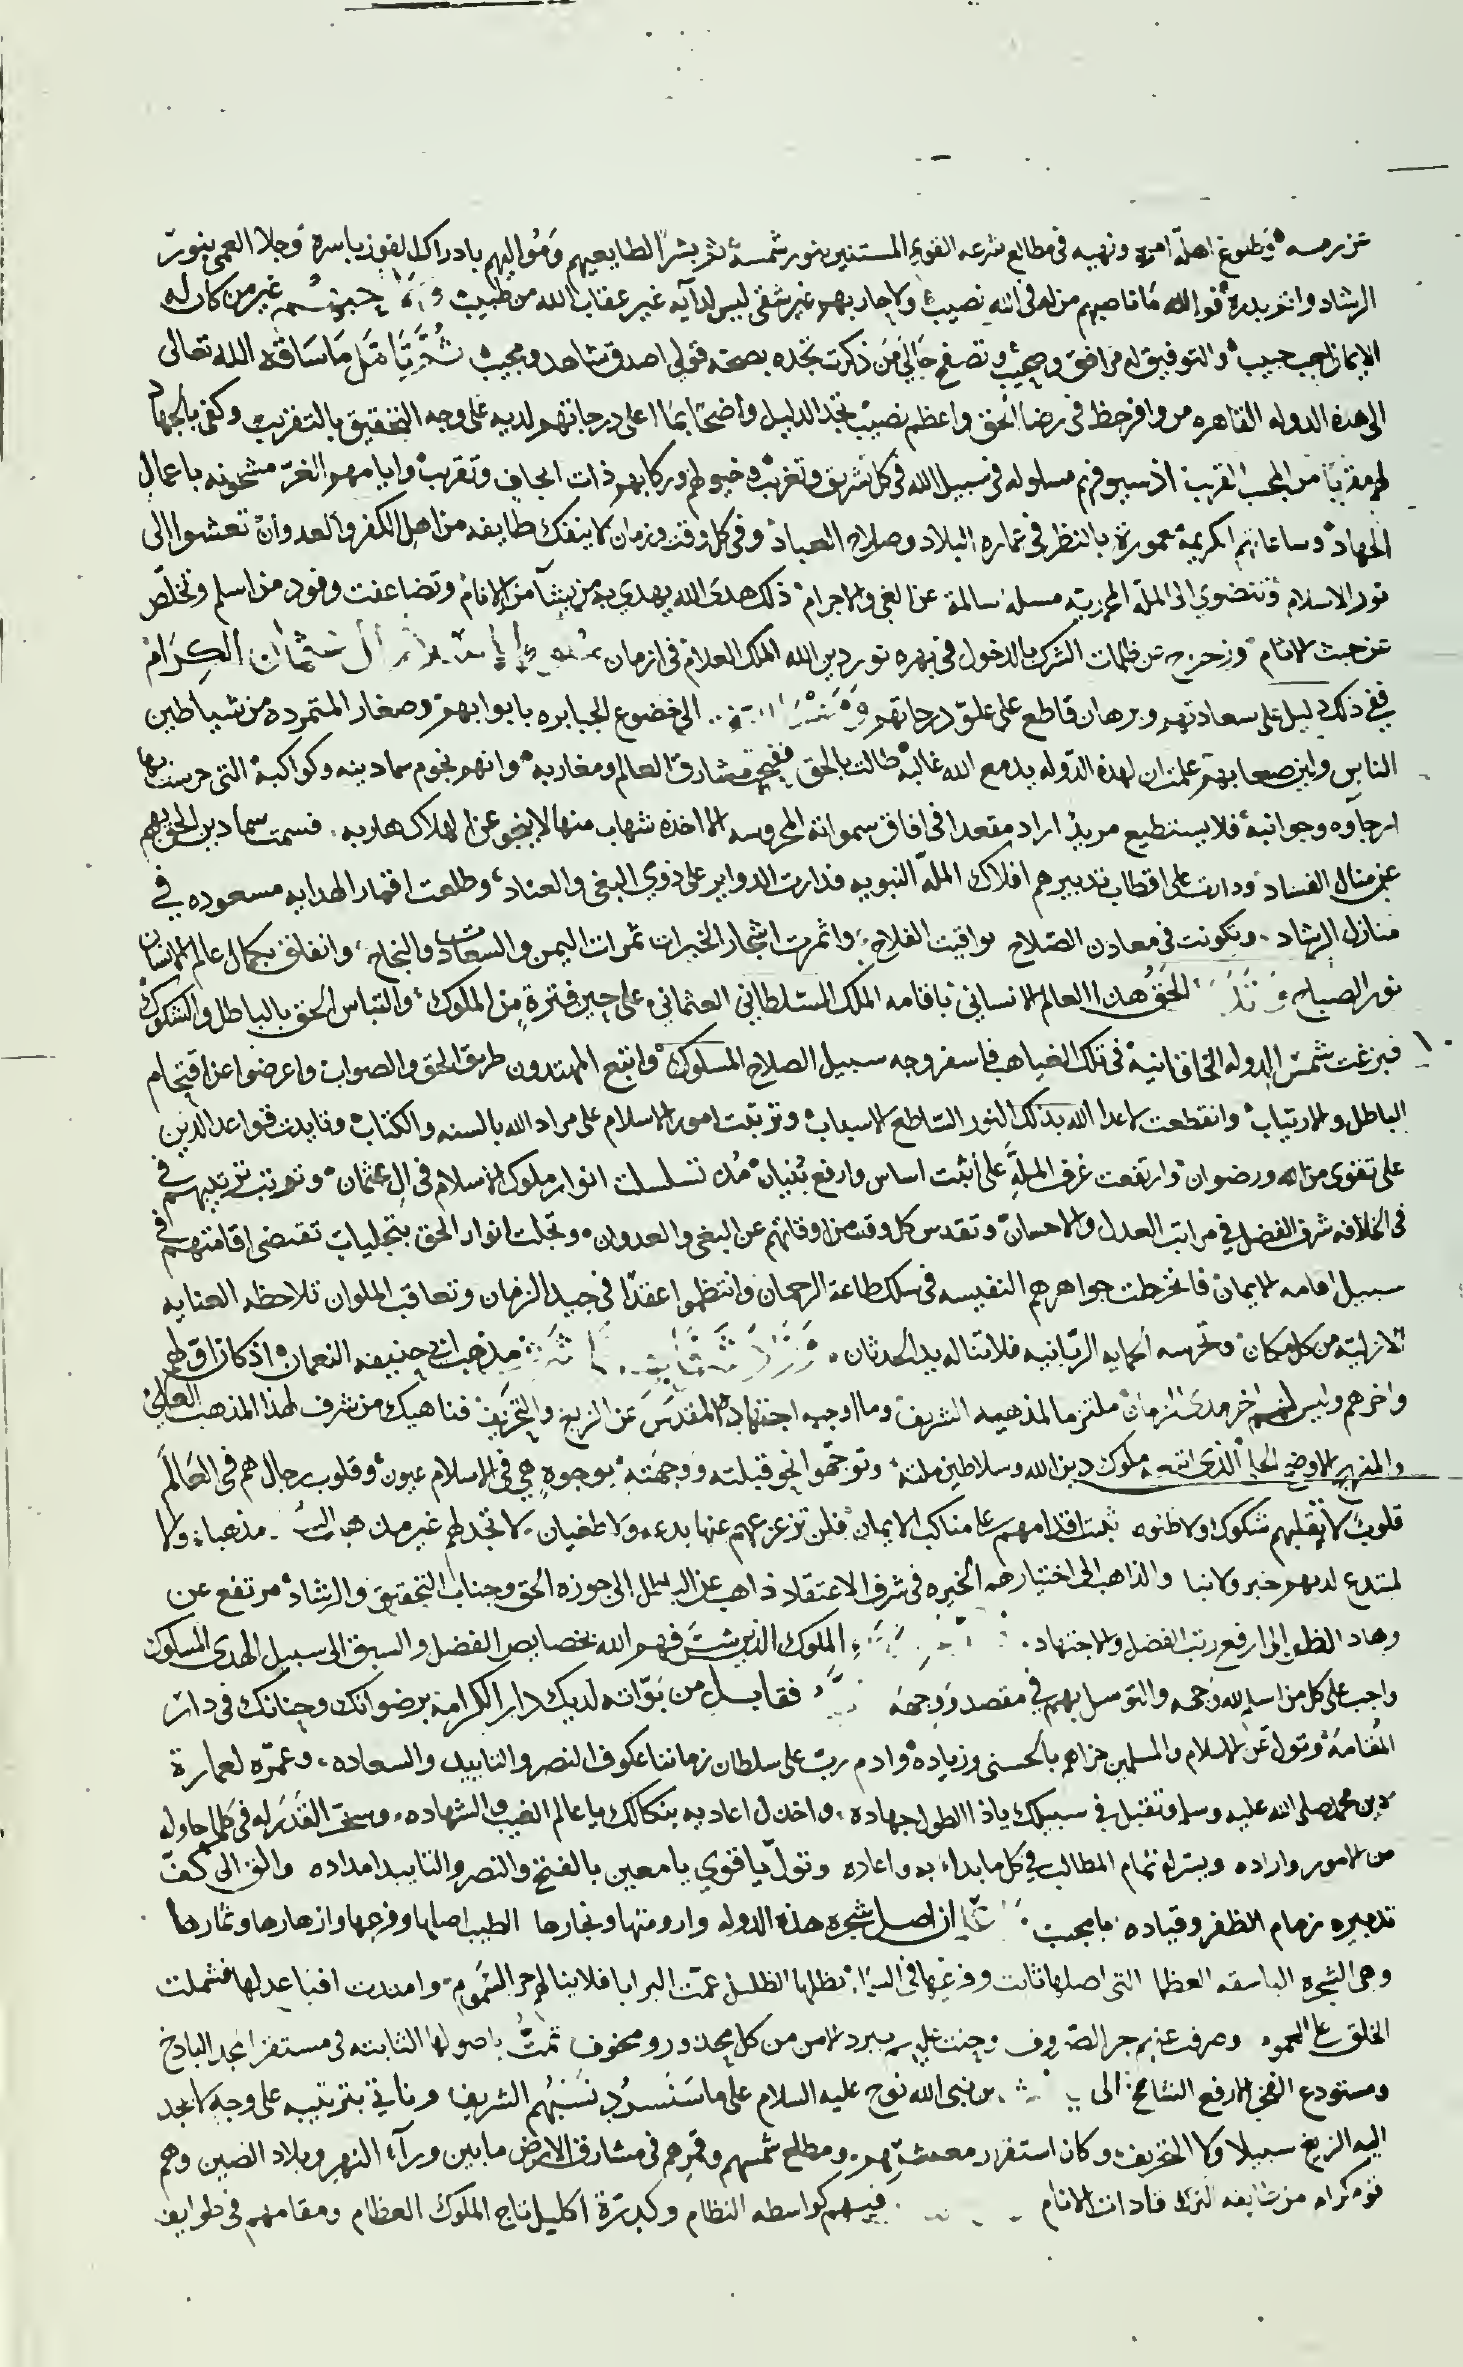 عن رمسه وطلوع اهلة امره ونهيه في مطالع شرعه القويم المستنير بنور شمسه ثم بشرا لطايعيهم ومواليهم بادراك الفوز باسره وجلا العمى بنور
الرشاد وانور بدره فو الله ما ناصبهم من له في الله نصيب ولا حاربهم غير شقي ليس لدآيه غير عقاب الله من طبيب غير من كان له
الايمان احب حبيب والتوفيق له مرافق وصحيب وتصفح حال من ذكرت تجده بصحة قولي اصدق شاهد ومجيب ثم تامل ما ساقه الله تعالى
الى هذه الدوله القاهره من وافر حظ في رضا الحق واعظم نصيب تجد الدليل واضحا بما اعلى درجاتهم لديه على وجه التحقيق بالتقريب وكفى بالجهاد
لهم مقربا من المجيب القريب اذ سيوفهم مسلوله في سبيل الله في كل تشريق وتغريب وخيولهم وركابهم ذات ايجاف وتقريب وايامهم الغر مشحونه باعمال
الجهاد وساعاتهم الكريمة معمورة بالنظر في عماره البلاد وصلاح العباد وفي كل وقت وزمان لا ينفك طايفه من اهل الكفر والعدوان تعشوا الى
نور الاسلام وتنضوي الى الملة المحمدية مسلمة سالمة عن الغي والاجرام ذلك هدى الله يهدي به من يشآ من الانام وتضاعفت وفود من اسلم وتخلص
عن خبث الاثام وزحزح عن ظلمات الشرك بالدخول في بهره نور دين الله الملك العلام في ازمان ال عثمان الكرام
ففي ذلك دليل على سعادتهم وبرهان قاطع على علو درجاتهم الى خضوع الجبابره بابوابهم وصغار المتمرده من شياطين
الناس ولين صعابهم علمت ان لهذه الدوله يد مع الله غالبه طالت بالحق ففتحت مشارق العالم ومغاربه وانهم نجوم سما دينه وكواكبه التي حرست بها
ارجآوه وجوانبه فلا يستطيع مريد اراد مقعدا في افاق سمواته المحروسه الا اخذه شهاب منها لا ينجو عن الهلاك هاربه فسمت سما دين الحق بهم
عن منال الفساد ودارت على اقطاب تدبيرهم افلاك الملة النبويه فدارت الدواير على ذوي البغي والعناد وطلعت اقمار الهدايه مسعوده في
منازل الرشاد وتكونت في معادن الصلاح يواقيت الفلاح واثمرت اشجار الخيرات ثمرات اليمن والسعادات والنجاح وانفلق بجمال عالم الانسان
نور الصباح الحق هذا العالم الانساني باقامه الملك السلطاني العثماني على حين فترة من الملوك والتباس الحق بالباطل والشكوك
فبزغت شمس الدوله الخاقانية في تلك الغياهب فاسفر وجه سبيل الصلاح المسلوك واتبع المهتدون طريق الحق والصواب واعرضوا عن اقتحام
الباطل والارتياب وانقطعت لاعدا الله بذلك النور الساطع الاسباب وترتبت امور الاسلام على مراد الله بالسنه والكتاب وتايدت قواعد الدين
على تقوى من الله ورضوان وارتفعت غرف الملة على أثبت اساس وارفع بنيان مذ تسلسلت انوار ملوك الاسلام في ال عثمان وترتب ترتيبهم في
في الخلافه شرف الفضل في مراتب العدل والاحسان وتقدس كل وقت من اوقاتهم عن البغي والعدوان وتجلت انوار الحق بتجليات تقتضي اقامتهم في
سبيل اقامه الايمان فانخرطت جواهرهم النفيسه في سلك طاعة الرحمان وانتظموا عقدا في جيد الزمان وتعاقب الملوان تلاحظه العنايه
الازلية من كل مكان وتحرسه الحمايه الربانيه فلا تناله يد الحدثان مذهب ابي حنيفه النعمان اذ كان اولهم
واخرهم وليس لهم اخر مدى الزمان ملتزما لمذهبه الشريف وما اوجبه اجتهاده المقدس عن الزيغ والتحريف فناهيك من شرف لهذا المذهب العلي
والمنهج الاوضح الجلي الذي اتبعه ملوك دين الله وسلاطين ملته وتوجهوا نحو قبلته ووجهته بوجوه هي في الاسلام عيون وقلوب رجال هم في العالم
قلوب لا تقلبهم شكوك ولا ظنون ثبتت اقدامهم على مناكب الايمان فلن تزعزعهم عنها بدعه ولا طغيان لا تجد لهم غير مذهبا ولا
لمبتدع لديهم خبر ولا نبا والذاهب الى اختيارهم الخيره في شرف الاعتقاد ذاهب عن الباطل الى حوزه الحق وجناب التحقيق والرشاد مرتفع عن
وهاد الظن الى ارفع رتب الفضل والاجتهاد الملوك الذين شرفهم الله بخصايص الفضل والسبق الى سبيل الهدى المسلوك
واجب على كل من اسلم لله وجهه والتوسل بهم في مقصد ووجهه فقابل من بوأته لديك دار الكرامة برضوانك وجنانك في دار
المقامة وتول عن الاسلام والمسلمين جزاهم بالحسنى وزياده وادم رب على سلطان زماننا عكوف النصر والتاييد والسعاده وعمره لعمارة
دين محمد صلى الله عليه وسلم وتقبل في سبيلك ياذا الطول جهاده واخذل اعاديه بنكالك يا عالم الغيب والشهاده وسخر القدر له في كلما حاوله
من الامور واراده ويسر له تمام المطالب في كل ما بداه به واعاده وتول يا قوي يا معين بالفتح والنصر والتاييد امداده والق الى كف
تدبيره زمام الظفر وقياده يا مجيب ان اصل شجره هذه الدوله وارومتها ونجارها الطيب اصلها وفرعها وازهارها وثمارها
وهي الشجره الباسقه العظما التي اصلها ثابت وفرعها في السما بظلها الظليل عمت البرايا فلا ينالهم حر السموم وامتدت افيا عدلها فشملت
الخلق على العموم وصرفت عنهم حر الصروف وجنت عليهم ببرد الامن من كل محذور ومخوف نمت باصولها الثابته في مستقر المجد الباذخ
ومستودع الفخر الارفع الشامخ الى بن نبي الله نوح عليه السلام على ما سنسرد نسبهم الشريف وناتي بترتيبه على وجه لا يجد
اليه الزيغ سبيلا ولا التحريف وكان استقرار معيشتهم ومطلع شمسهم وقمرهم في مشارق الارض ما بين ورآء النهر وبلاد الصين وهم
قوم كرام من طايفه الترك قادات الانام فيهم كواسطه النظام وكدرة اكليل تاج الملوك العظام ومقامهم في طوايف